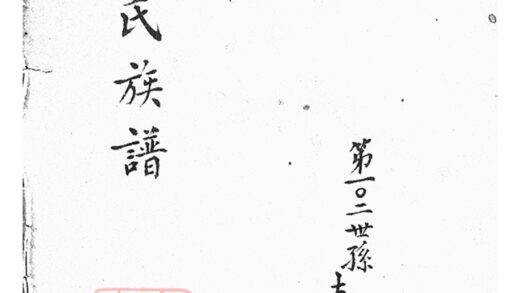 第一〇二世孫
氏族譜